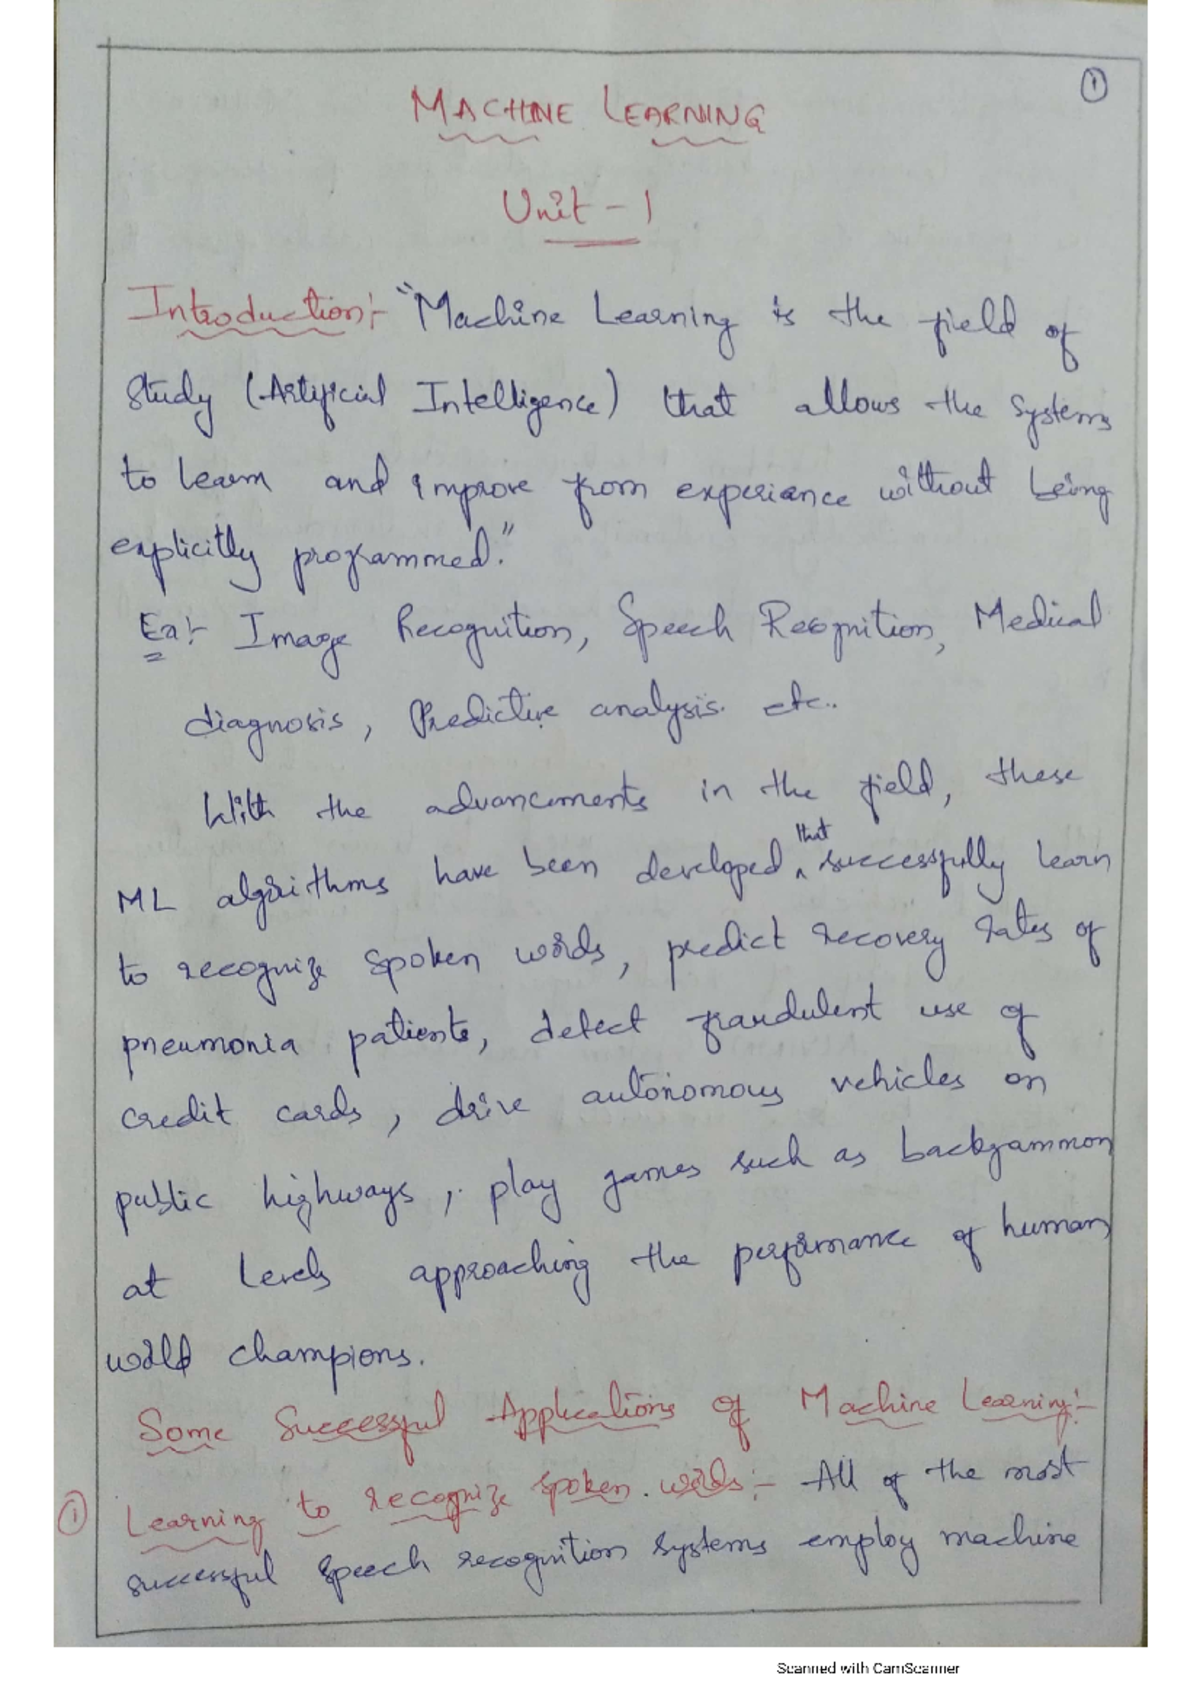 1
MACHINE LEARNING
Unit - 1
Introduction:- "Machine Learning is the field of
study (Artificial Intelligence) that allows the systems
to learn and improve from experiance without being
explicitly programmed."
Ex:- Image Recognition, Speech Recognition, Medical
diagnosis, Predictive analysis. etc..
With the advancements in the field, these
ML algorithms have been developed, that successfully learn
to recognize spoken words, predict recovery rates of
pneumonia patients, detect fraudulent use of
credit cards, drive autonomous vehicles on
public highways, play games such as backgammon
at levels approaching the performance of human
world champions.
Some Successful Applications of Machine Learning:-
① Learning to recognize spoken words:- All of the most
successful speech recognition systems employ machine
Scanned with CamScanner